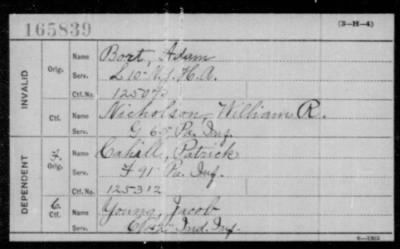 165839
(3-H-4)
INVALID
Orig.
Name Bort, Adam
Serv. L 10 N.Y. H.A.
Ctf. No. 12507
Ctf.
Name Nicholson, William R.
Serv. G 6 Pa. Inf.
DEPENDENT
Orig.
Name Cahill, Patrick
Serv. F 91 Pa. Inf.
Ctf. No. 125312
C. Ctf.
Name Young, Jacob
Serv. Ind. Inf.